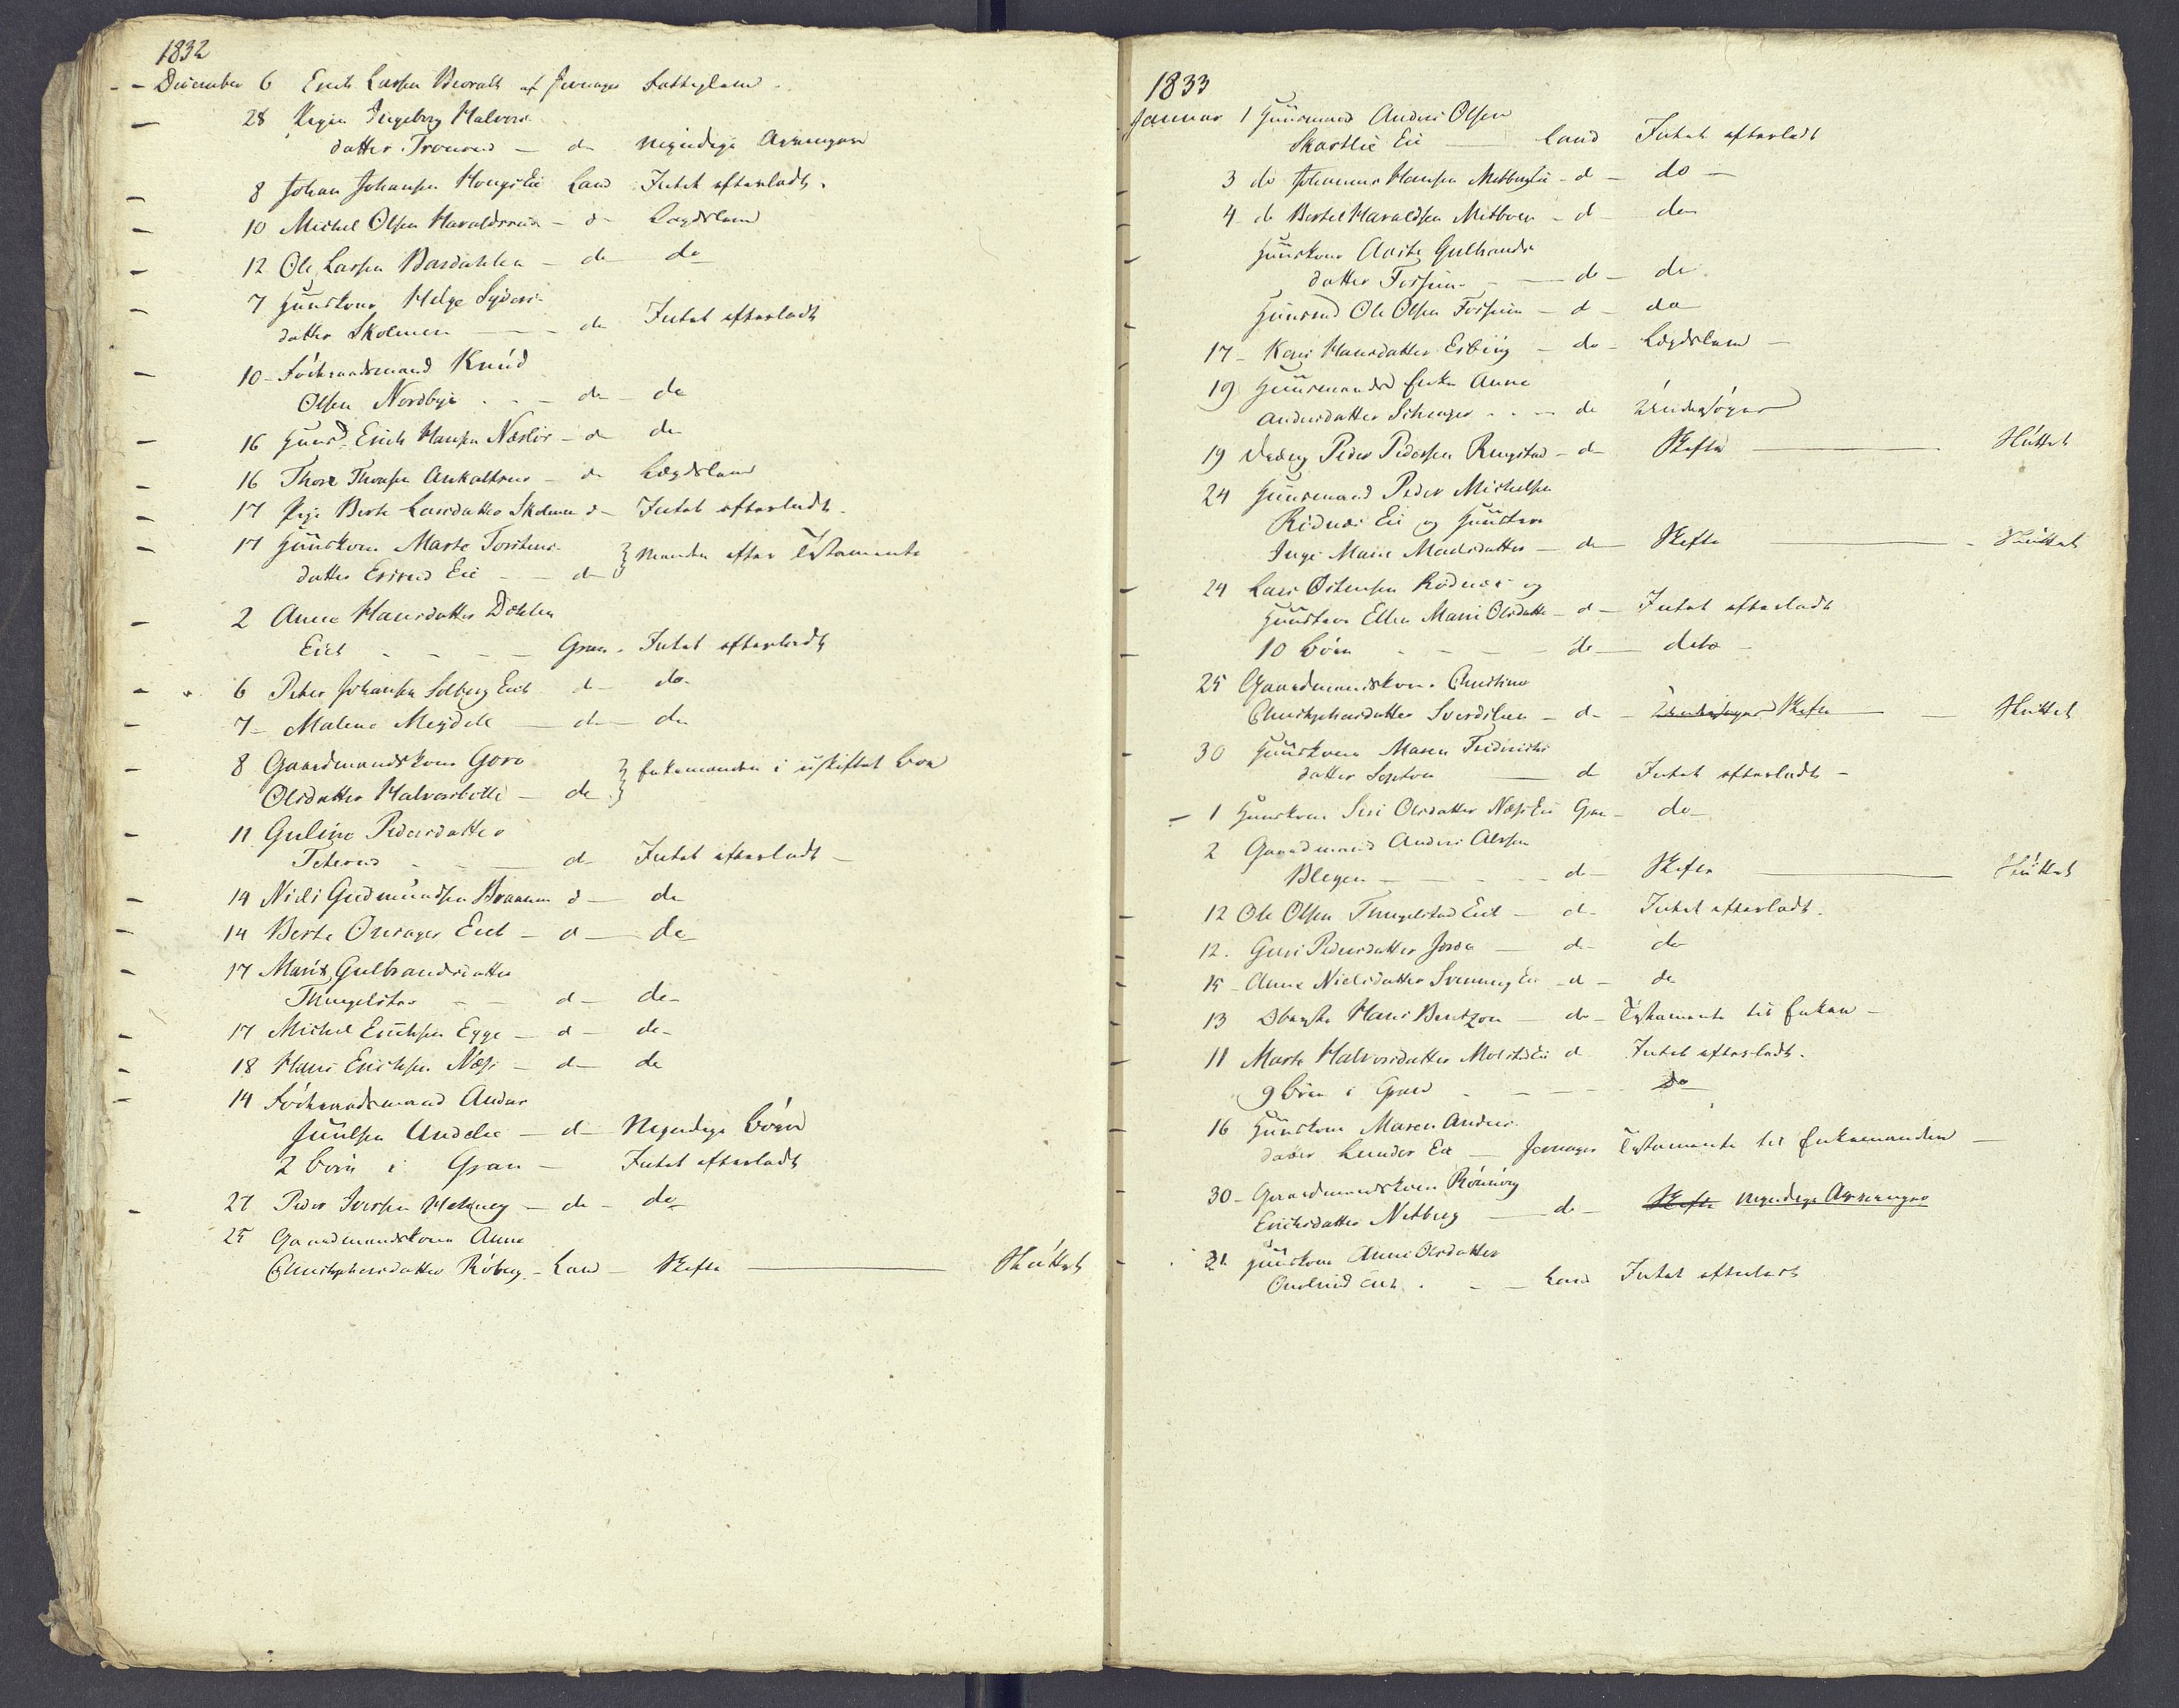 1832
December 6 Erich Larsen Bevrald af Jevnager Fattiglem
28 Pigen Ingeborg Halvors
datter Trourud - do Myndige Arvinger
8 Johan Johansen Hougs Eie Land Intet efterladt.
10 Michel Olsen Haraldsrud - do Lægdslem
12 Ole Larsen Bardahlen - do do
7 Huuskone Helge Syvers
datter Skolmen - do Intet efterladt
10 - Föderaadsmand Knud
Olsen Nordbye - do do
16 Huusmd Erich Hansen - do do
16 Thore Thorsen - do Lægdslem
17 Pige Berte Larsdatter Skolmen do Intet efterladt.
17 Huuskone Marte Torstens
datter Eie - do } Manden efter Testamente
2 Anne Hansdatter Dæhlen
Eiet - Gran - Intet efterladt
6 Peter Johansen Solberg Eiet do do
7 - Malene Meydell - do - do
8 Gaardmandskone Goro
Olsdatter Halvorsbölle - do } Enkemanden i uskiftet Boe
11 Guline Pedersdatter
- do Intet efterladt -
14 Niels Gudmundsen Braanen do - do
14 Berte Eiet - do - do
17 Marit Gulbrandsdatter
Thingelstad - do - do -
17 Michel Erichsen Egge - do - do -
18 Hans Erichsen Næss - do - do
14 Föderaadsmand Anders
Juulsen Undelie - do - Myndige Börn
2 Börn i Gran - Intet efterladt
27 Peder Iversen - do - do
25 Gaardmandskone Anne
Christophersdatter Röberg - Land - Skifte - Sluttet
1833
Januar 1 Huusmand Anders Olsen
Skartlie Eie - Land Intet efterladt
3 do Johannes Hansen - do - do -
4 - do Bertel Haraldsen - do - do
Huuskone Aaste Gulbrands
datter Fossum - do - do
Huusmd Ole Olsen Fossum - do - do
17 - Kari Hansdatter - do - Lægdslem -
19 Huusmands Enke Anne
Andersdatter - do Undersöges
19 Peder Pedersen Ringstad - do Skifte - Sluttet
24 Huusmand Peder Michelsen
Rödnæs Eie og Hustru
Inge Marie Madsdatter - do - Skifte - Sluttet
24 Lars Östensen Rödnæs og
Hustrue Ellen Marie Olsdatter - do - Intet efterladt
10 Börn - do - dito -
25 Gaardmandskone Christine
Christophersdatter - do - Undersöges Skifte - Sluttet
30 Huuskone Maren Fredrichs
datter - do Intet efterladt -
1 Huuskone Siri Olsdatter Næss Eie Gran - do -
2 Gaardmand Anders Alfsen
Blegen - do - Skifte - Sluttet
12 Ole Olsen Thingelstad Eiet - do - Intet efterladt.
12. Guri Pedersdatter - do - do
15 - Anne Nielsdatter Eie - do - do
13 Hans Bentzon - do - Testamente til Enken -
11 Marte Halvorsdatter Eie do Intet efterladt.
9 Börn i Gran - do
16 Huuskone Maren Anders
datter Lunder Eie - Jevnager Testamente til Enkemanden -
30 - Gaardmandskone Rönnoug
Erichsdatter - do - Skifte Myndige Arvinger
31 Huuskone Anne Olsdatter
Eiet. - Land Intet efterladt